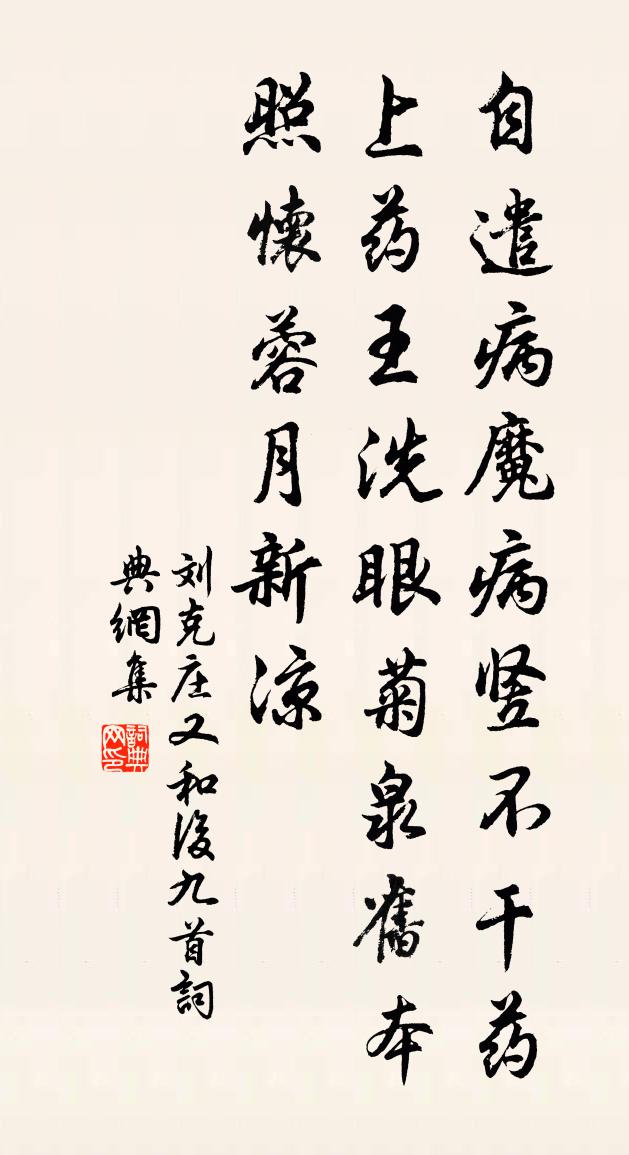 自遣病魔病竖不干药
上药王洗眼菊泉舊本
照懷蓉月新涼
刘克庄又和後九首詞
典網集
詞典网印